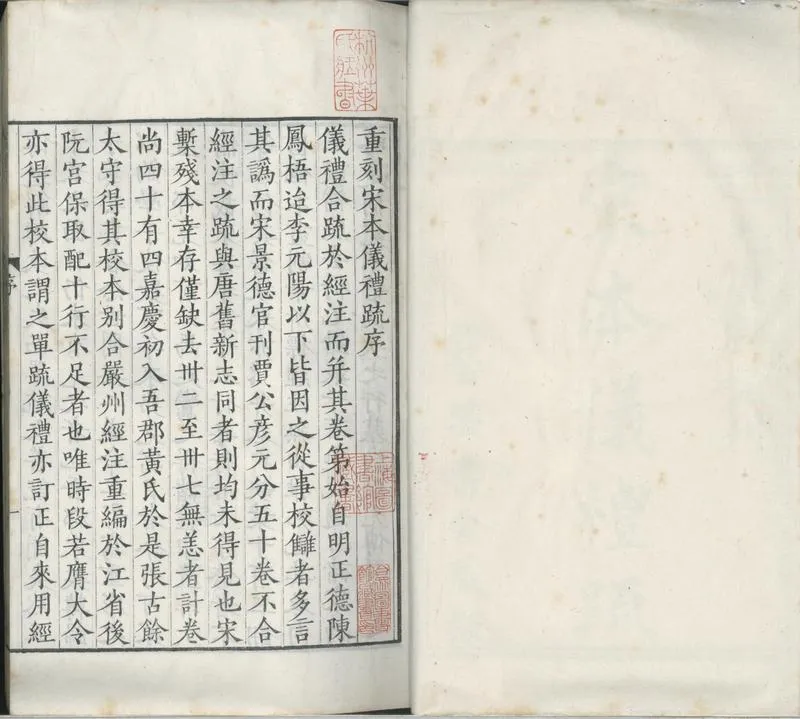 重刻宋本儀禮疏序
儀禮合疏於經注而并其卷第始自明正德陳
鳳梧迨李元陽以下皆因之從事校讎者多言
其譌而宋景德官刊賈公彥元分五十卷不合
經注之疏與唐舊新志同者則均未得見也宋
槧殘本幸存僅缺去卅二至卅七無恙者計卷
尚四十有四嘉慶初入吾郡黃氏於是張古餘
太守得其校本別合嚴州經注重編於江省後
阮宮保取配十行不足者也唯時段若膺大令
亦得此校本謂之單疏儀禮亦訂正自來用經
序
一
杭州葉氏藏書